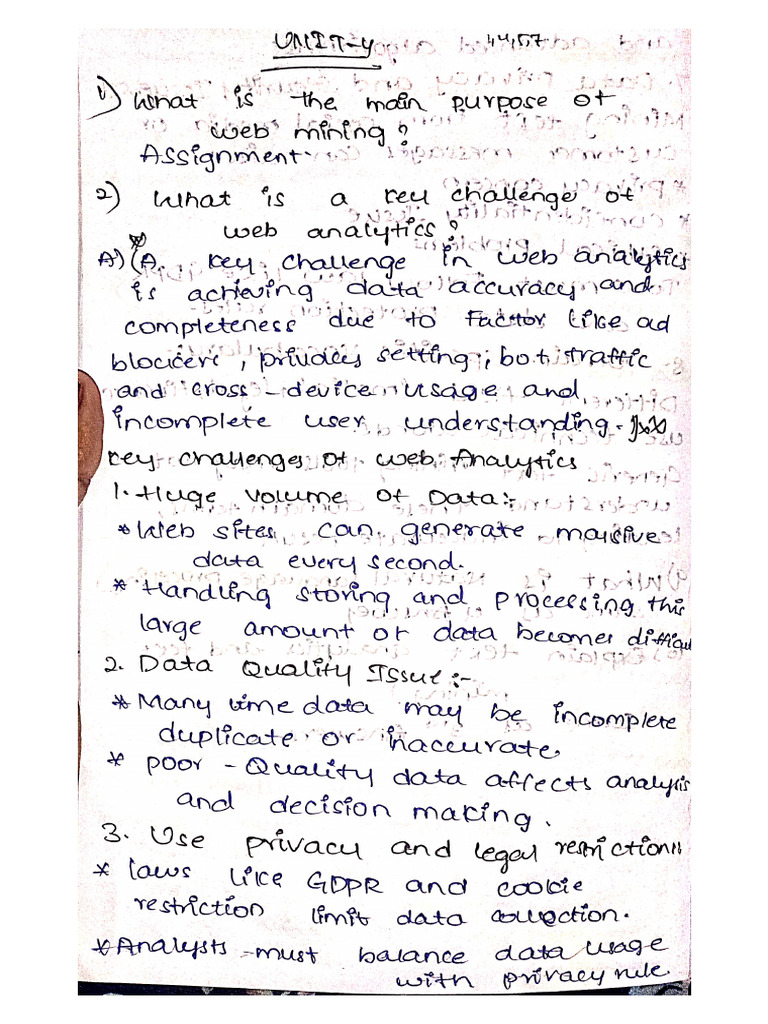 UNIT-4
1) What is the main purpose of
web mining?
Assignment.
2) What is a key challenge of
web analytics?
A) (A key challenge in web analytics
is achieving data accuracy and
completeness due to factor like ad
blockers, privacy setting, bot traffic
and cross-device usage and
incomplete user understanding.
key challenges of web Analytics
1. Huge volume of Data:-
* Web sites can generate massive
data every second.
* Handling storing and processing this
large amount of data becomes difficul
2. Data Quality Issue:-
* Many time data may be incomplete
duplicate or inaccurate.
* poor-Quality data affects analysis
and decision making.
3. Use privacy and legal restrictions
* laws like GDPR and cookie
restriction limit data collection.
* Analysts must balance data usage
with privacy rule